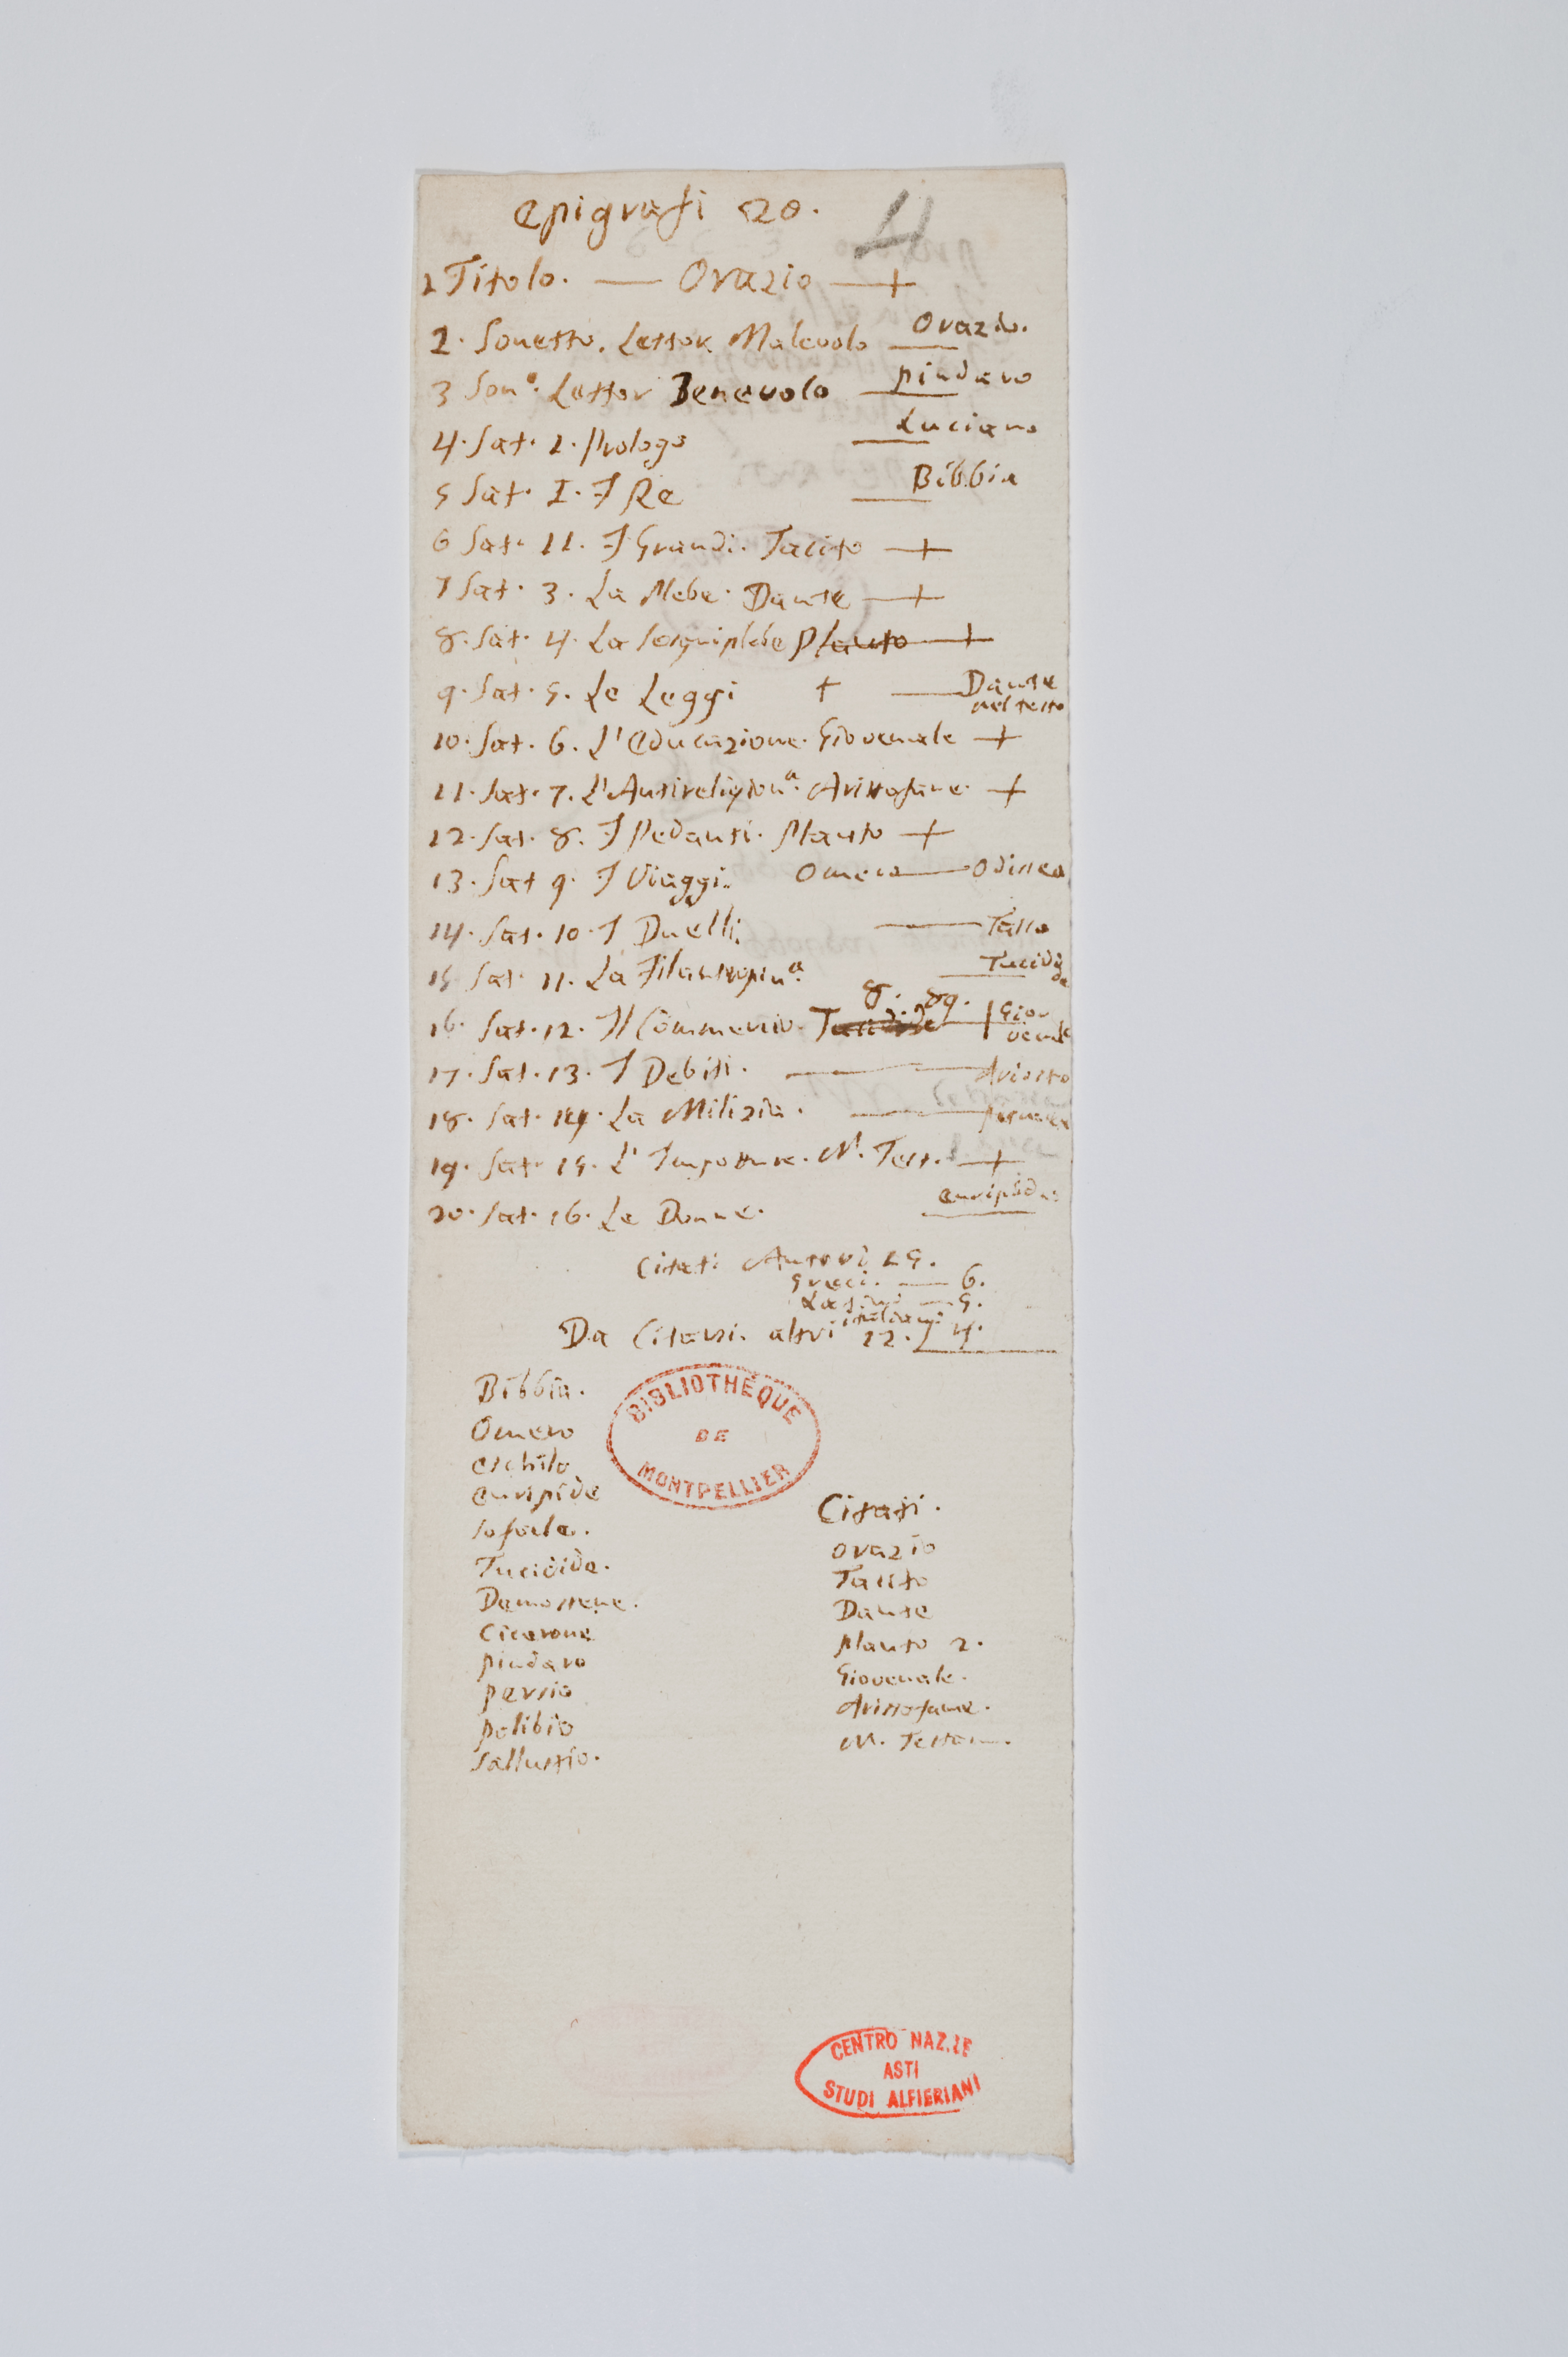 Epigrafi 20. 4
1 Titolo. — Orazio — +
2. Sonetto. Lettor Malevolo — Orazio.
3 Son.o Lettor Benevolo — pindaro
4. Sat. 1. Prologo — Luciano
5 Sat. I. I Re — Bibbia
6 Sat. 11. I Grandi. Tacito — +
7 Sat. 3. La Plebe. Dante — +
8. Sat. 4. La Sesquiplebe Plauto — +
9. Sat. 5. Le Leggi + — Dante nel testo
10. Sat. 6. L'Educazione. Giovenale — +
11. Sat. 7. L'Antireligion.a Aristofane. — +
12. Sat. 8. I Pedanti. Plauto — +
13. Sat 9. I Viaggi. Omero — Odissea
14. Sat. 10. I Duelli. — Tasso
15 Sat. 11. La Filantropin.a — Tucidide
8. 89.
16. Sat. 12. Il Commercio. Tucidide — Giovenale
17. Sat. 13. I Debiti. — Ariosto
18. Sat. 14. La Milizia. —
19. Sat. 15. L'Impostura. N. Test. — +
20. Sat. 16. Le Donne. Euripide
Citati Autori 15.
Greci. — 6.
Latini — 5.
italiani 4.
Da Citarsi altri 12.
Bibbia.
Omero
Eschilo
Euripide
Sofocle.
Tucidide.
Demostene.
Cicerone
pindaro
persio
polibio
Sallustio.
BIBLIOTHÈQUE
DE
MONTPELLIER
Citati.
Orazio
Tacito
Dante
Plauto 2.
Giovenale.
Aristofane.
N. Testam.
CENTRO NAZ.LE
ASTI
STUDI ALFIERIANI